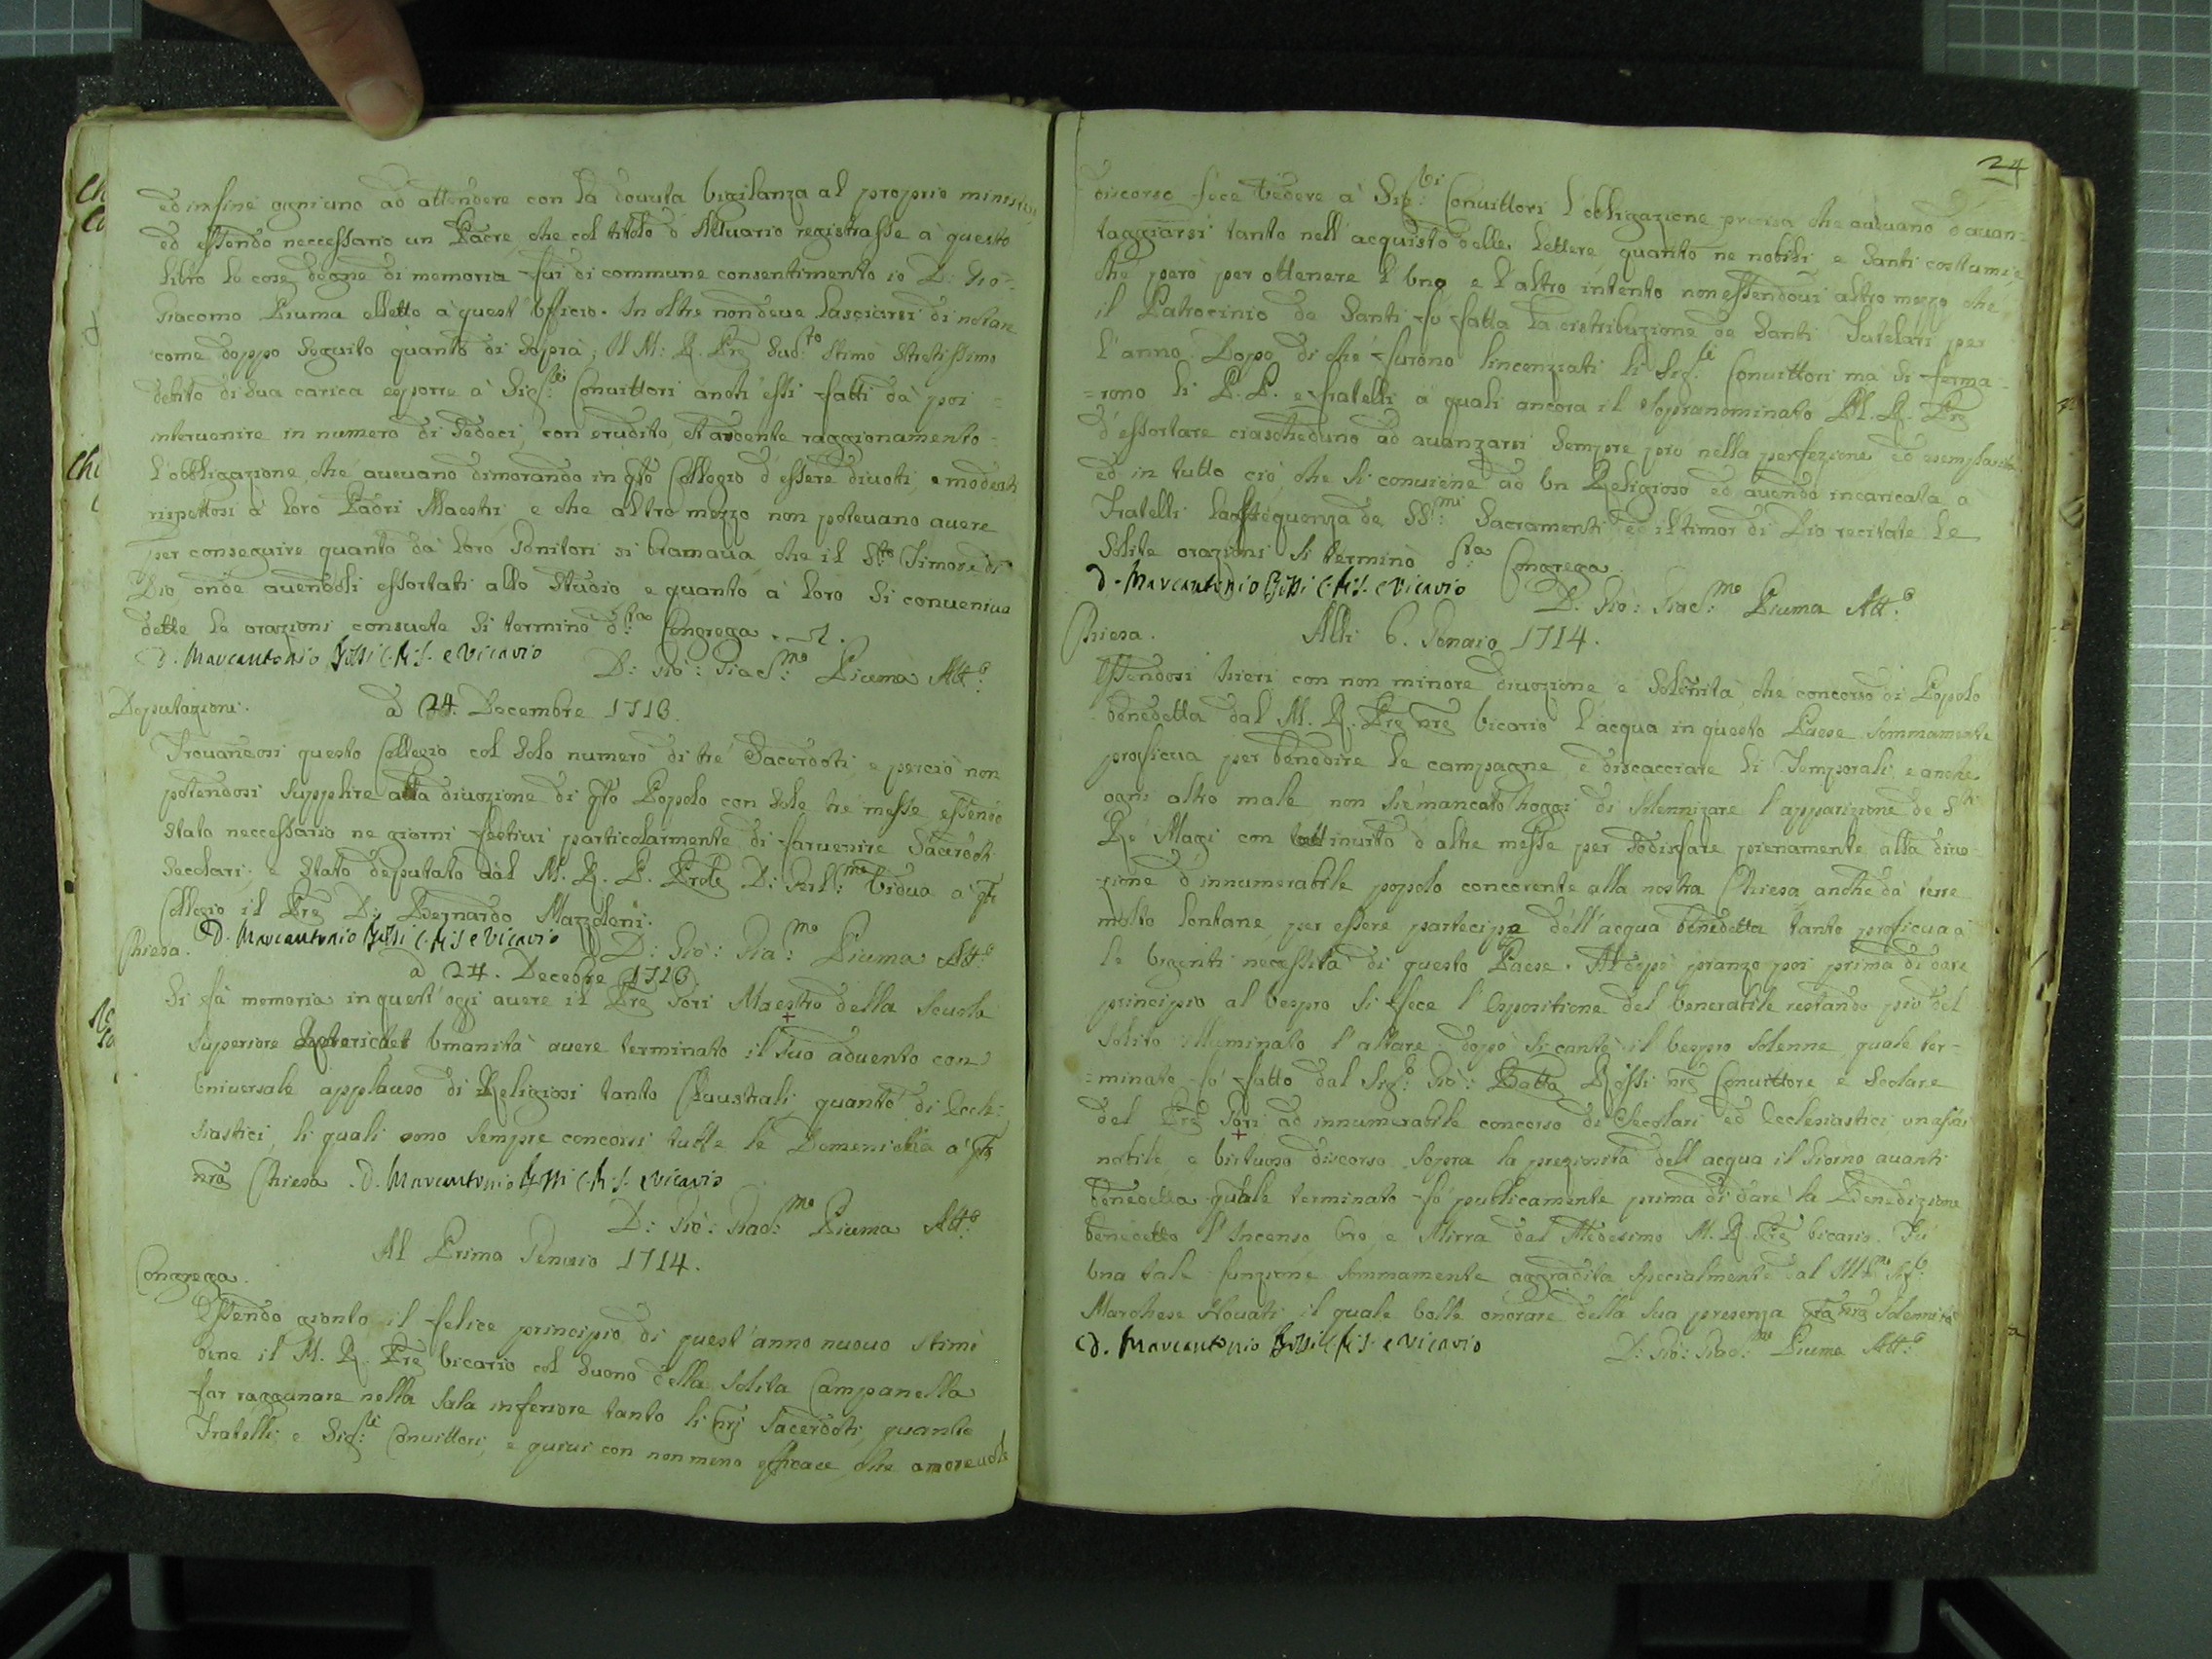 ed infine ogni uno ad attendere con la douuta vigilanza al proprio
ed essendo neccessario un Padre, che col titolo d'Attuario registrasse a questo
libro le cose degne di memoria fui di commune consentimento io D: Gio:
Giacomo Piuma elletto à quest'Vfficio. In oltre non deue lasciarsi di notare
come doppo seguito quanto di sopra, il M: R. Pre Sud.to stimò strettissimo
debito di sua carica esporre à Sig.ri Conuittori anch'essi fatti dà poi
interuenire in numero di sedeci, con erudito, et ardente raggionamento
l'obbligazione, che aueuano dimorando in qto Collegio d'essere diuoti, e modesti
rispettosi a loro Padri Maestri e che altro mezzo non poteuano auere
per conseguire quanto dà loro Genitori si bramaua che il Sto Timore di
Dio, onde auendoli essortati allo studio e quanto à loro si conueniua
dette le orazioni consuete si terminò d.ta Congrega.
d. Marcantonio Rossi C.R.S. e Vicario
D: Gio: Giac.mo Piuma Att.o
Deputazioni.
a 24. Decembre 1713
Trouandosi questo Collegio col solo numero di tré Sacerdoti, e perciò non
potendosi supplire alla diuozione di qto Popolo con sole tré messe essendo
stato neccessario ne giorni festiui particolarmente di far uenire Sacerdoti
secolari; è stato deputato dal M. R. P. D: vidua a
Collegio il Pre D: Bernardo Mazzoleni.
d. Marcantonio Rossi C.R.S e Vicario
D: Gio: Gia:mo Piuma Att.o
Chiesa.
a 24. Decebre 1713
Si fà memoria in quest'oggi auere il Pre Sori Maestro della scuola
superiore vmanità auere terminato il suo aduento con
vniuersale applauso di Religiosi tanto Claustrali, quanto di Eccle:
siastici, li quali sono sempre concorsi tutte le Domeniche a qta
nra Chiesa. d. Marcantonio Rossi C.R.S. e Vicario
D: Gio: Giac:mo Piuma Att.o
Al Primo Genaio 1714.
Congrega.
Essendo gionto il felice principio di quest'anno nuouo stimò
bene il M. R. Pre Vicario col suono della solita Campanella
far raggunare nella sala inferiore tanto li nri Sacerdoti, quanto
Fratelli e Sig:ri Conuittori, e quiui con non meno efficace, che amoreuole
24
discorso fece vedere à Sig:ri Conuittori l'obbligazione precisa che aueuano d'auan=
taggiarsi tanto nell'acquisto delle lettere quanto ne nobili e santi costumi, e
che però per ottenere l'vno e l'altro intento non essendoui altro mezzo che
il Patrocinio de Santi fù fatta la distribuzione de Santi Tutelari per
l'anno. Dopo di che furono lincenziati li Sig.ri Conuittori ma si ferma=
=rono li P.P. e fratelli à quali ancora il sopranominato M. R. Pre
d'essortare ciascheduno ad auanzarsi sempre più nella perfezione ed
ed in tutto ciò, che si conuiene ad vn Religioso ed auendo incaricata a
Fratelli la frequenza de SS:mi Sacramenti ed il timor di Dio recitate le
solite orazioni si terminò d:ta Congrega.
d. Marcantonio Rossi C.R.S. e Vicario
D. Gio: Giac:mo Piuma Att.o
Chiesa.
Alli 6. Genaio 1714.
Essendosi hieri con non minore diuozione e solenità, che concorso di Popolo
benedetta dal M. R. Pre nro Vicario l'acqua in questo Paese sommamente
proficua per benedire le campagne, e discacciare li Temporali, e anche
ogni altro male non siè mancato hoggi di solennizare l'apparizione de Sti
Ré Magi con inuito d'altre messe per sodisfare pienamente alla diuo=
zione d'innumerabile popolo concorente alla nostra Chiesa anche dà terre
molto lontane, per essere partecipe dell'acqua benedetta tanto proficua a
le vrgenti necessità di questo Paese. Al dopò pranzo poi prima di dare
principio al Vespro si fece l'Espositione del Venerabile restando più del
solito illuminato l'altare: dopò si cantò il Vespro solenne, quale ter=
=minato fù fatto dal Sig:r Gio: Batta Rossi nro Conuittore e Scolare
del Pre Sori ad innumerabile concorso di Secolari ed Ecclesiastici vn assai
nobile e virtuoso discorso sopra la preziosità dell'acqua il giorno auanti
benedetta quale terminato fù publicamente prima di dare la Benedizione
benedetto l'Incenso, Oro, e Mirra dal Medesimo M. R. Pre Vicario. Fù
vna tale funzione sommamente aggradita specialmente dal Ill.mo Sig.r
Marchese Nouati il quale volle onorare della sua presenza qta nra solennità
d. Marcantonio Rossi C.R.S. e Vicario
D: Gio: Giac:mo Piuma Att.o